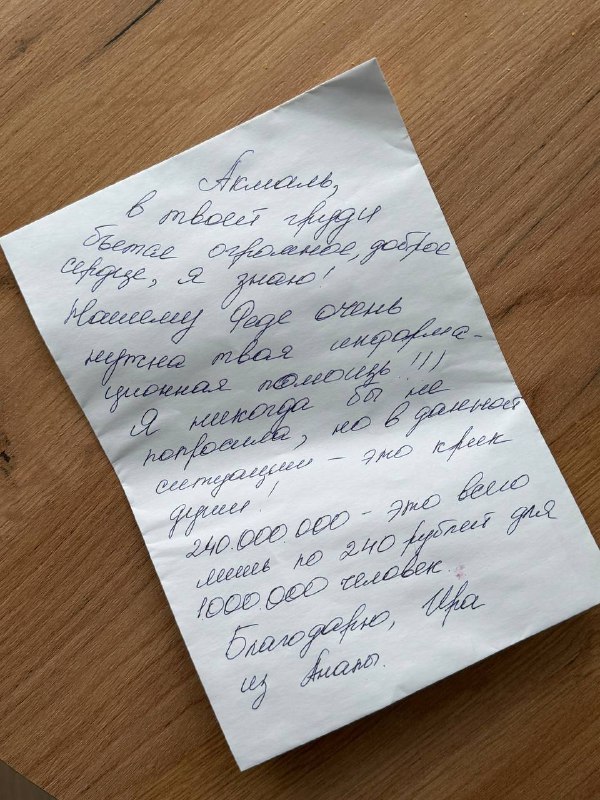 Акмаль,
в твоей груди
бьется огромное, доброе
сердце, я знаю!
Нашему Феде очень
нужна твоя информа-
ционная помощь!!!
Я никогда бы не
попросила, но в данной
ситуации – это крик
души!
240.000.000 – это всего
лишь по 240 рублей для
1000.000 человек.
Благодарю, Ира
из Анапы.